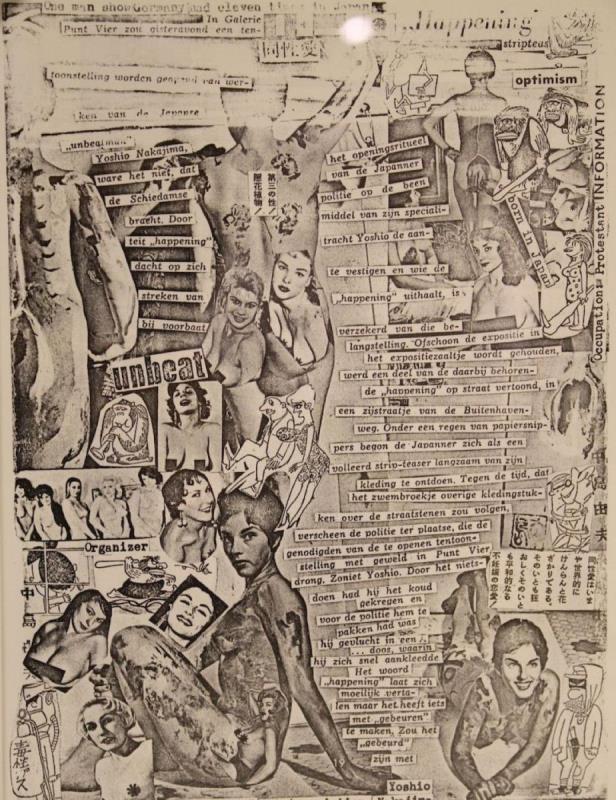 One man show Germany and eleven times in Japan
In Galerie
Punt Vier zou gisteravond een ten-
同性愛
toonstelling worden geopend van wer-
ken van de Japanre
„unbeatman"
Yoshio Nakajima,
ware het niet, dat
de Schiedamse
bracht. Door
teit „happening"
dacht op zich
streken van
bij voorbaat
unbeat
第三の性/
隠花植物/
„Happening"
stripteas
optimism
born in Japan
Occupation: Protestant INFORMATION
het openingsritueel
van de Japanner
politie op de been
middel van zijn speciali-
tracht Yoshio de aan-
te vestigen en wie de
„happening" uithaalt, is
verzekerd van die be-
langstelling. Ofschoon de expositie in
het expositiezaaltje wordt gehouden,
werd een deel van de daarbij behoren-
de „happening" op straat vertoond, in
een zijstraatje van de Buitenhaven-
weg. Onder een regen van papiersnip-
pers begon de Japanner zich als een
volleerd strip-teaser langzaam van zijn
kleding te ontdoen. Tegen de tijd, dat
het zwembroekje overige kledingstuk-
ken over de straatstenen zou volgen,
verscheen de politie ter plaatse, die de
genodigden van de te openen tentoon-
stelling met geweld in Punt Vier
drong. Zoniet Yoshio. Door het niets-
doen had hij het koud
gekregen en
voor de politie hem te
pakken had was
hij gevlucht in een
... doos, waarin
hij zich snel aankleedde
Het woord
„happening" laat zich
moeilijk verta-
len maar het heeft iets
met „gebeuren"
te maken. Zou het
„gebeurd"
zijn met
Yoshio
Organizer
中
島
由
夫
同性愛はいま
や世界的に
けんらんと花
ざかりである。
そのいとも狂
おしくそのいと
も平和的なる
不妊娠の恋愛/